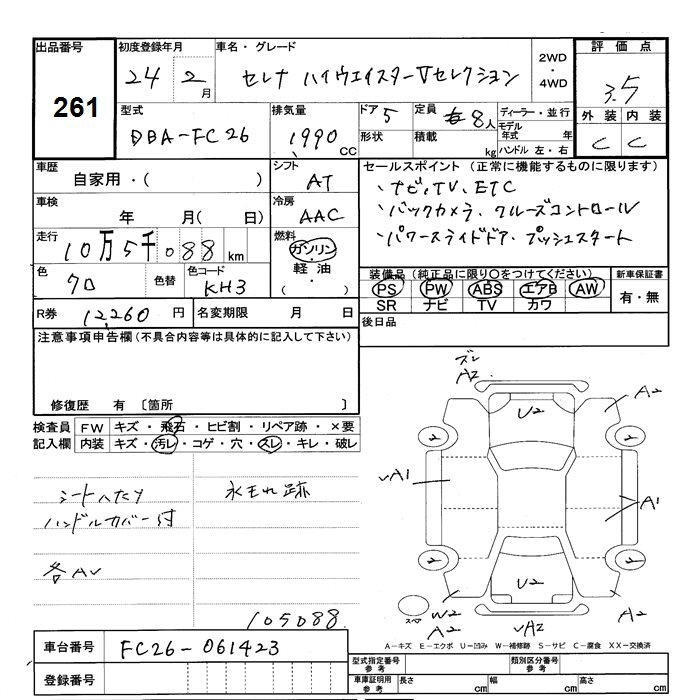 出品番号
261
初度登録年月
24 2 月
車名・グレード
セレナ ハイウェイスターVセレクション
2WD
・
4WD
評価点
3.5
外装 内装
C C
型式
DBA-FC26
排気量
1990 CC
ドア 5
定員 8人
ディーラー・並行
形状
積載 kg
モデル年式 年
ハンドル 左・右
車歴
自家用・( )
シフト
AT
セールスポイント (正常に機能するものに限ります)
・ナビ、TV、ETC
・バックカメラ、クルーズコントロール
・パワースライドドア、プッシュスタート
車検
年 月( 日)
冷房
AAC
走行
10万5千088 km
燃料
ガソリン
・
軽油
・( )
色
クロ
色替
色コード
KH3
装備品 (純正品に限り○をつけてください)
PS PW ABS エアB AW
SR ナビ TV カワ
新車保証書
有・無
R券 12,260 円
名変期限 月 日
後日品
注意事項申告欄(不具合内容等は具体的に記入して下さい)
修復歴 有 〔箇所 〕
検査員記入欄
FW キズ・飛石・ヒビ割・リペア跡・×要
内装 キズ・汚レ・コゲ・穴・スレ・キレ・破レ
シートヘタリ
ハンドルカバー付
各AU
水モレ跡
105088
ズレ
A2
U2
A2
2
2
vA1
A1
2
2
U2
スペア
W2
A2
vA2
A2
A-キズ E-エクボ U-凹み W-補修跡 S-サビ C-腐食 XX-交換済
車台番号 FC26-061423
登録番号
型式指定番号
参考
類別区分番号
参考
車庫証明用
参考
長さ cm
幅 cm
高さ cm